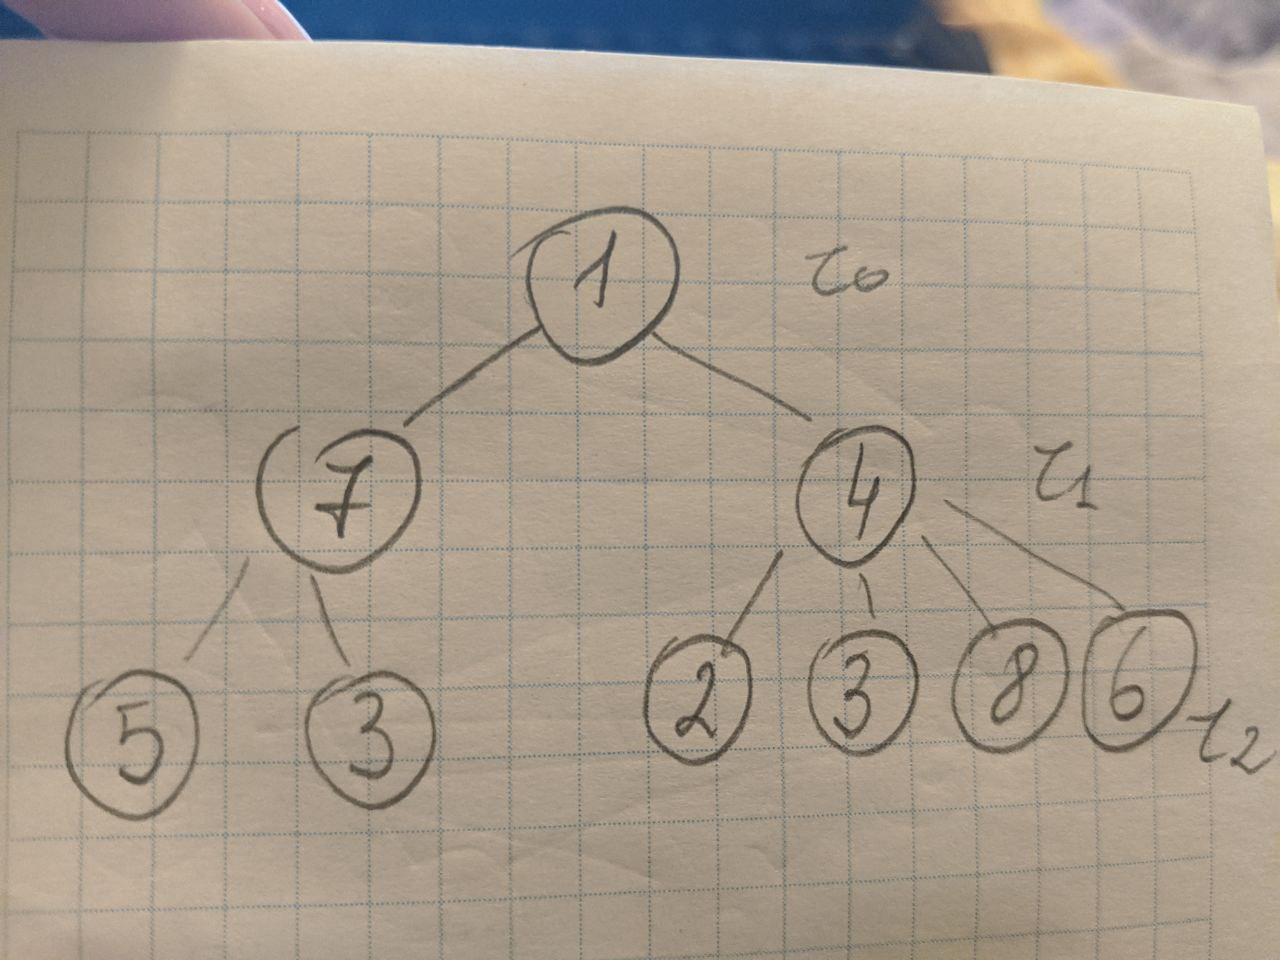 1 τ0
7 4 τ1
5 3 2 3 8 6 τ2